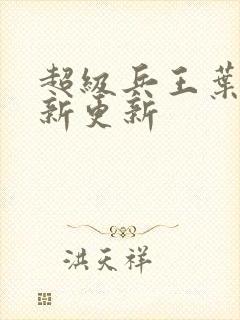 超級兵王葉
新更新
洪天祥